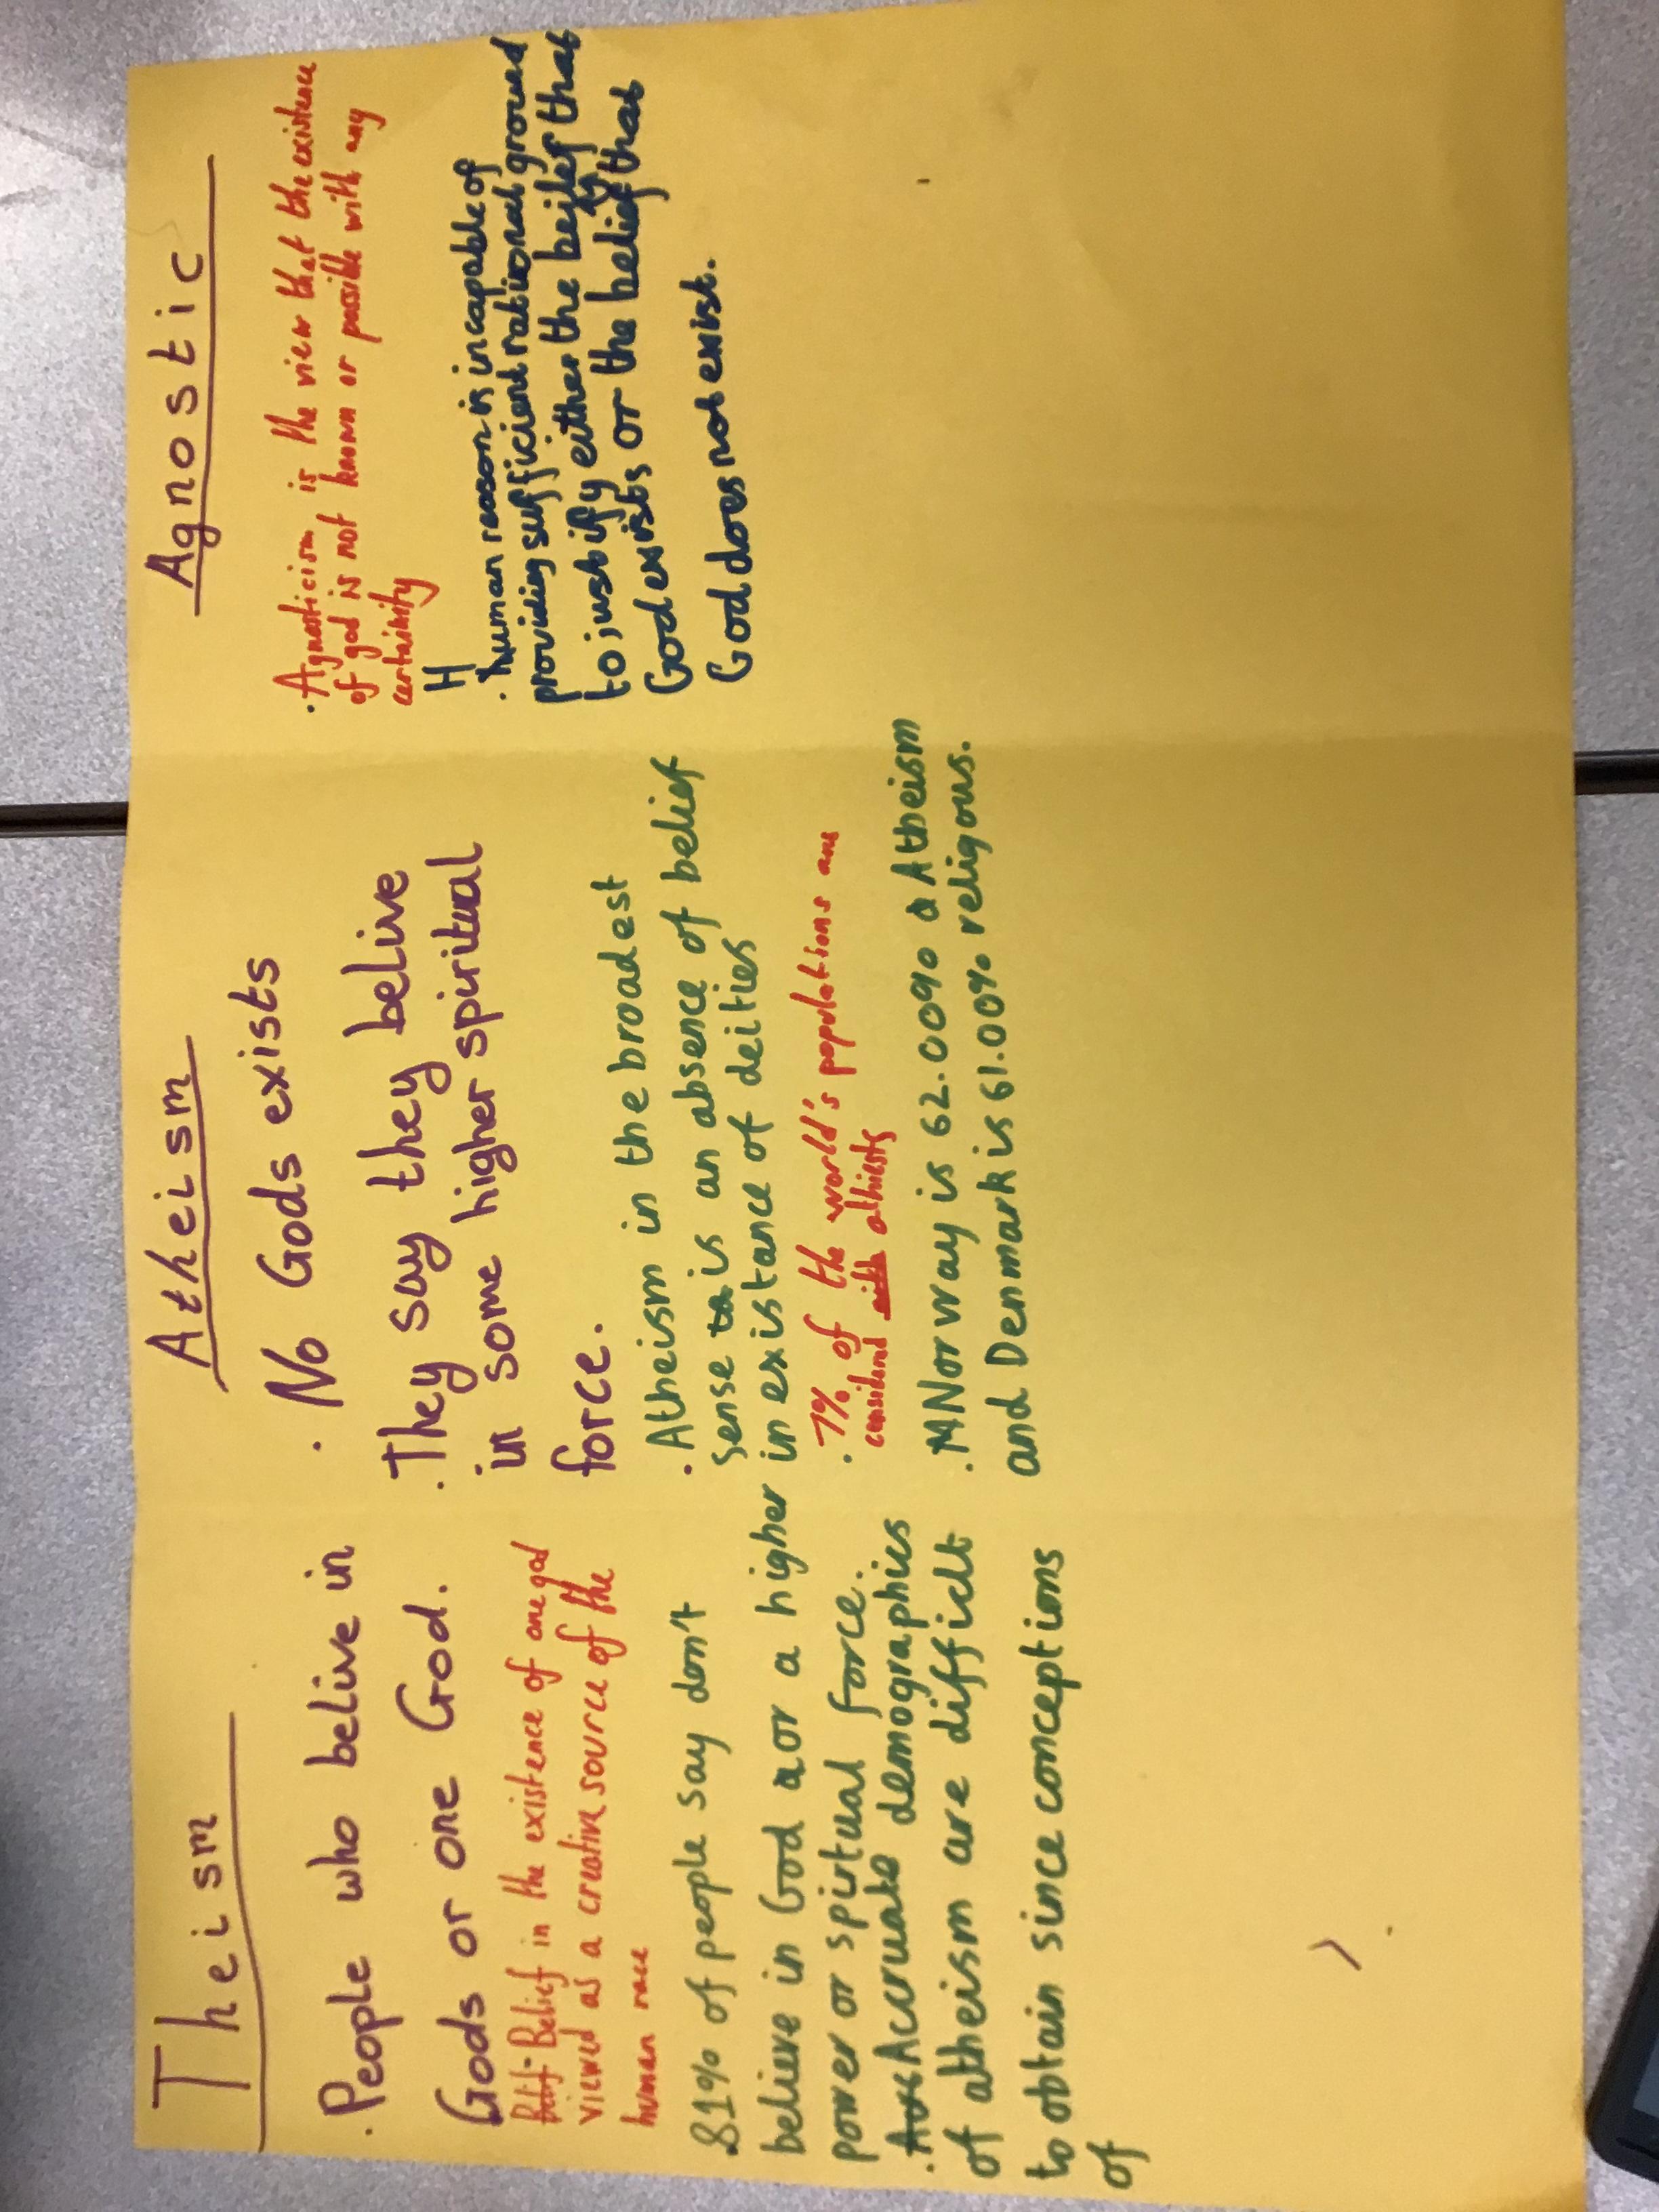 Theism
. People who belive in
Gods or one God.
Belief in the existence of one god
viewed as a creative source of the
human race
. 81% of people say don't
believe in God nor a higher
power or spiritual force.
. Accruate demographics
of atheism are difficlt
to obtain since conceptions
of
Atheism
. No Gods exists
. They say they belive
in some higher spiritual
force.
. Atheism in the broadest
sense is an absence of belief
in existance of deities
. 7% of the world's populations are
considered athiests
. Norway is 62.00% Atheism
and Denmark is 61.00% religous.
Agnostic
. Agnosticism is the view that the existence
of god is not known or possible with any
certainity
H
. human reason is incapable of
providing sufficient rational ground
to justify either the beilef that
God exists or the belief that
God does not exist.